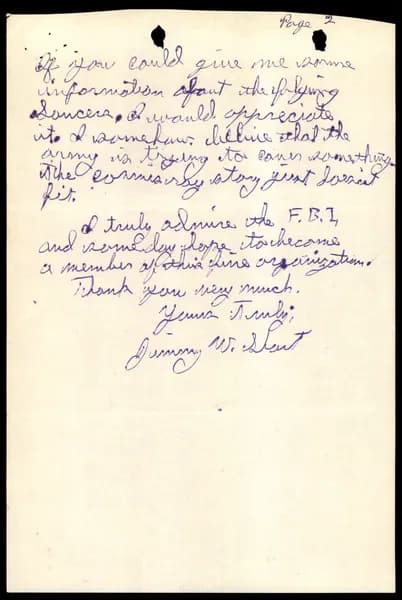 Page 2
If you could give me some
information about the flying
Soucers, I would appreciate
it. I somehow belive that the
army is trying to cover something.
The cosmic ray story just doesnt
fit.
I truly admire the F.B.I,
and someday hope to become
a member of this fine organization.
Thank you very much.
Yours truly,
Jimmy W.